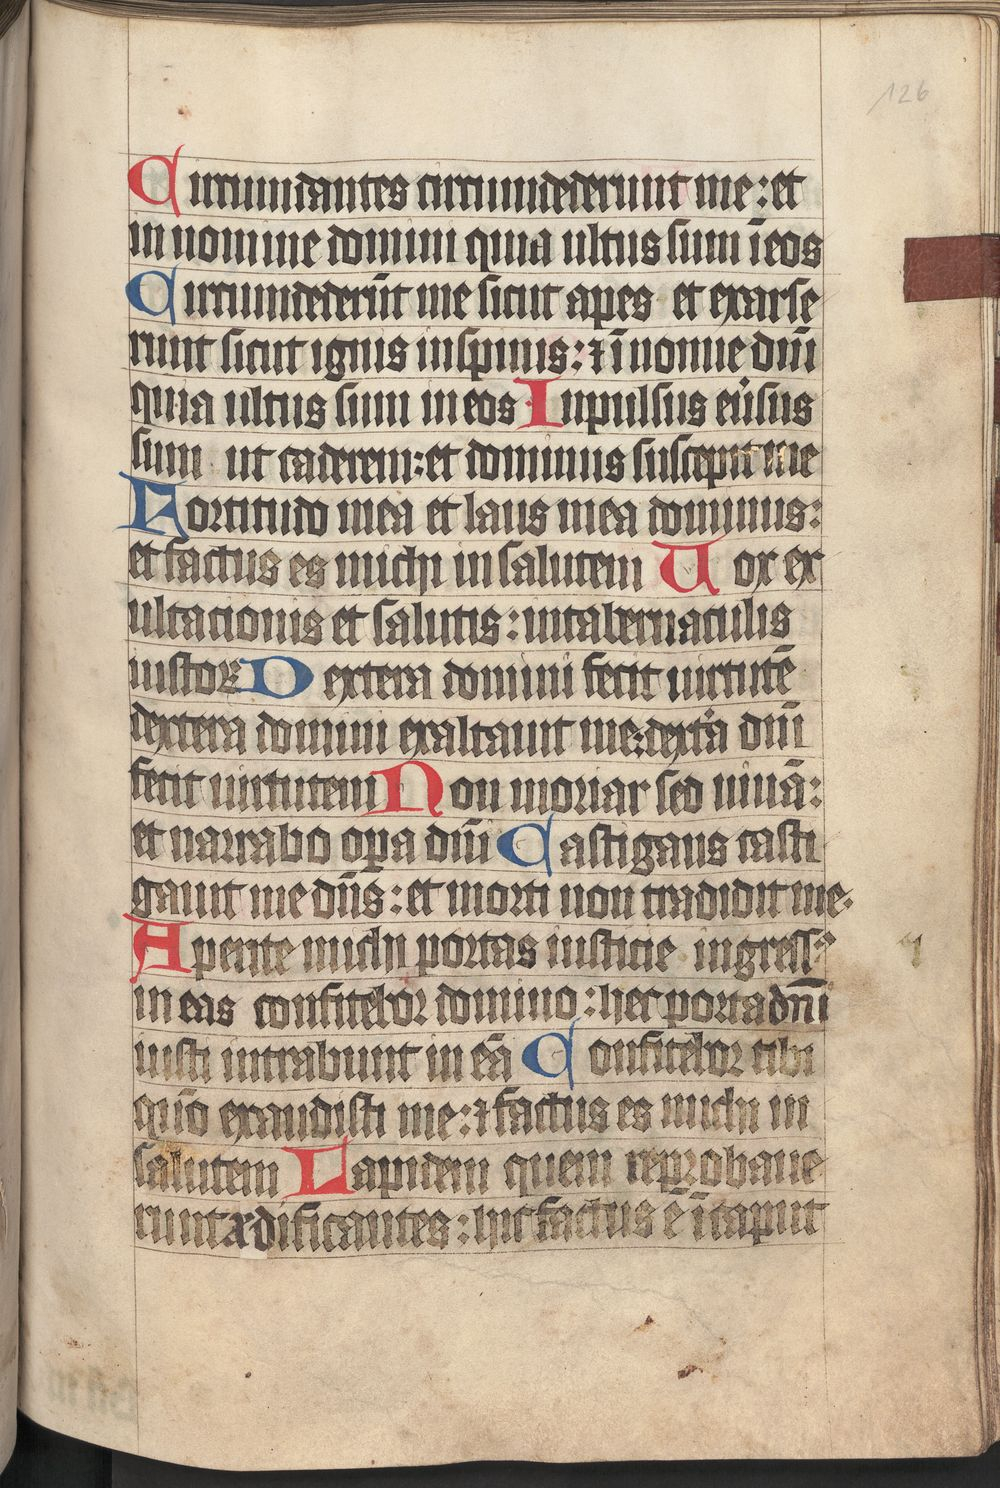 126
Circumdantes circumdederunt me: et
in nomine domini quia ultus sum ī eos
Circumdederūt me sicut apes et exarse
runt sicut ignis in spinis: ⁊ ī nomīe dn̄i
quia ultus sum in eos Inpulsus eu̾sus
sum ut caderem: et dominus suscepit me
Fortitudo mea et laus mea dominus:
et factus es michi in salutem Uox ex
ultacionis et salutis: in tabernaculis
iustoꝝ Dextera domini fecit uirtutē
dextera domini exaltauit me: dext̾a dn̄i
fecit uirtutem Non moriar sed uiuā:
et narrabo oꝑa dn̄i Castigans casti
gauit me dn̄s: et morti non tradidit me.
Aperite michi portas iusticie ingress᷒
in eas confitebor domino: hec porta dn̄i
iusti intrabunt in eā Confitebor tibi
qn̄o exaudisti me: ⁊ factus es michi in
salutem Lapidem quem reprobaue
runt ædificantes: hic factus ē ī caput